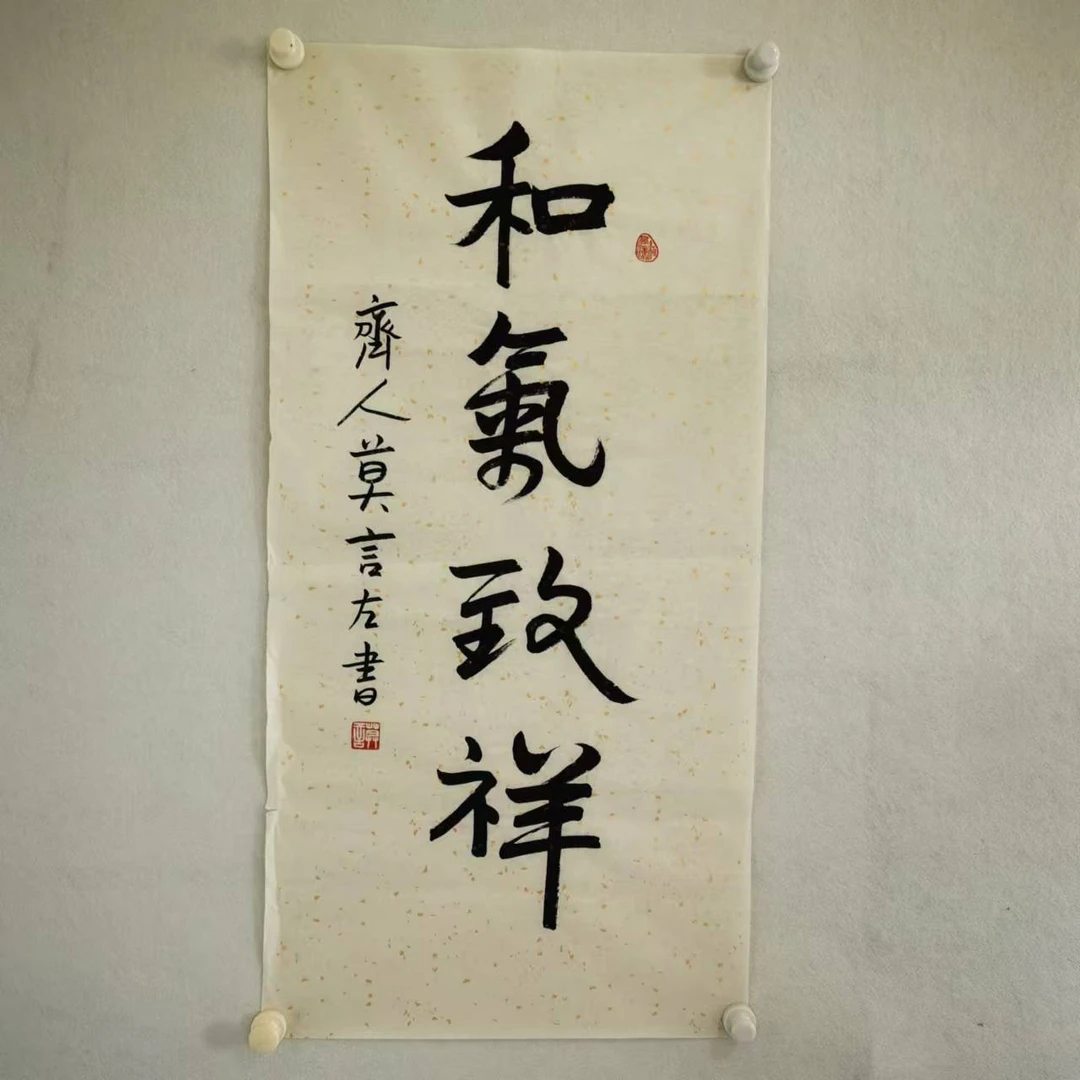 和氣致祥
齊人莫言左書
莫言